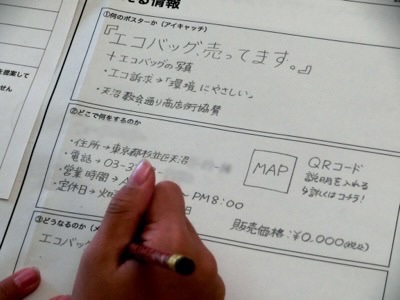 情報
①何のポスターか（アイキャッチ）
『エコバッグ、売ってます。』
＋エコバッグの写真
・エコ訴求→「環境にやさしい」
・天沼教会通り商店街協賛
②どこで何をするのか
・住所→東京都杉並区天沼
・電話→03-3
・営業時間→A
～PM8:00
・定休日→火
MAP
QRコード
説明を入れる
↳詳しくはコチラ!
販売価格:¥0.000(税込)
③どうなるのか（メ
エコバッ
を提案して
せん